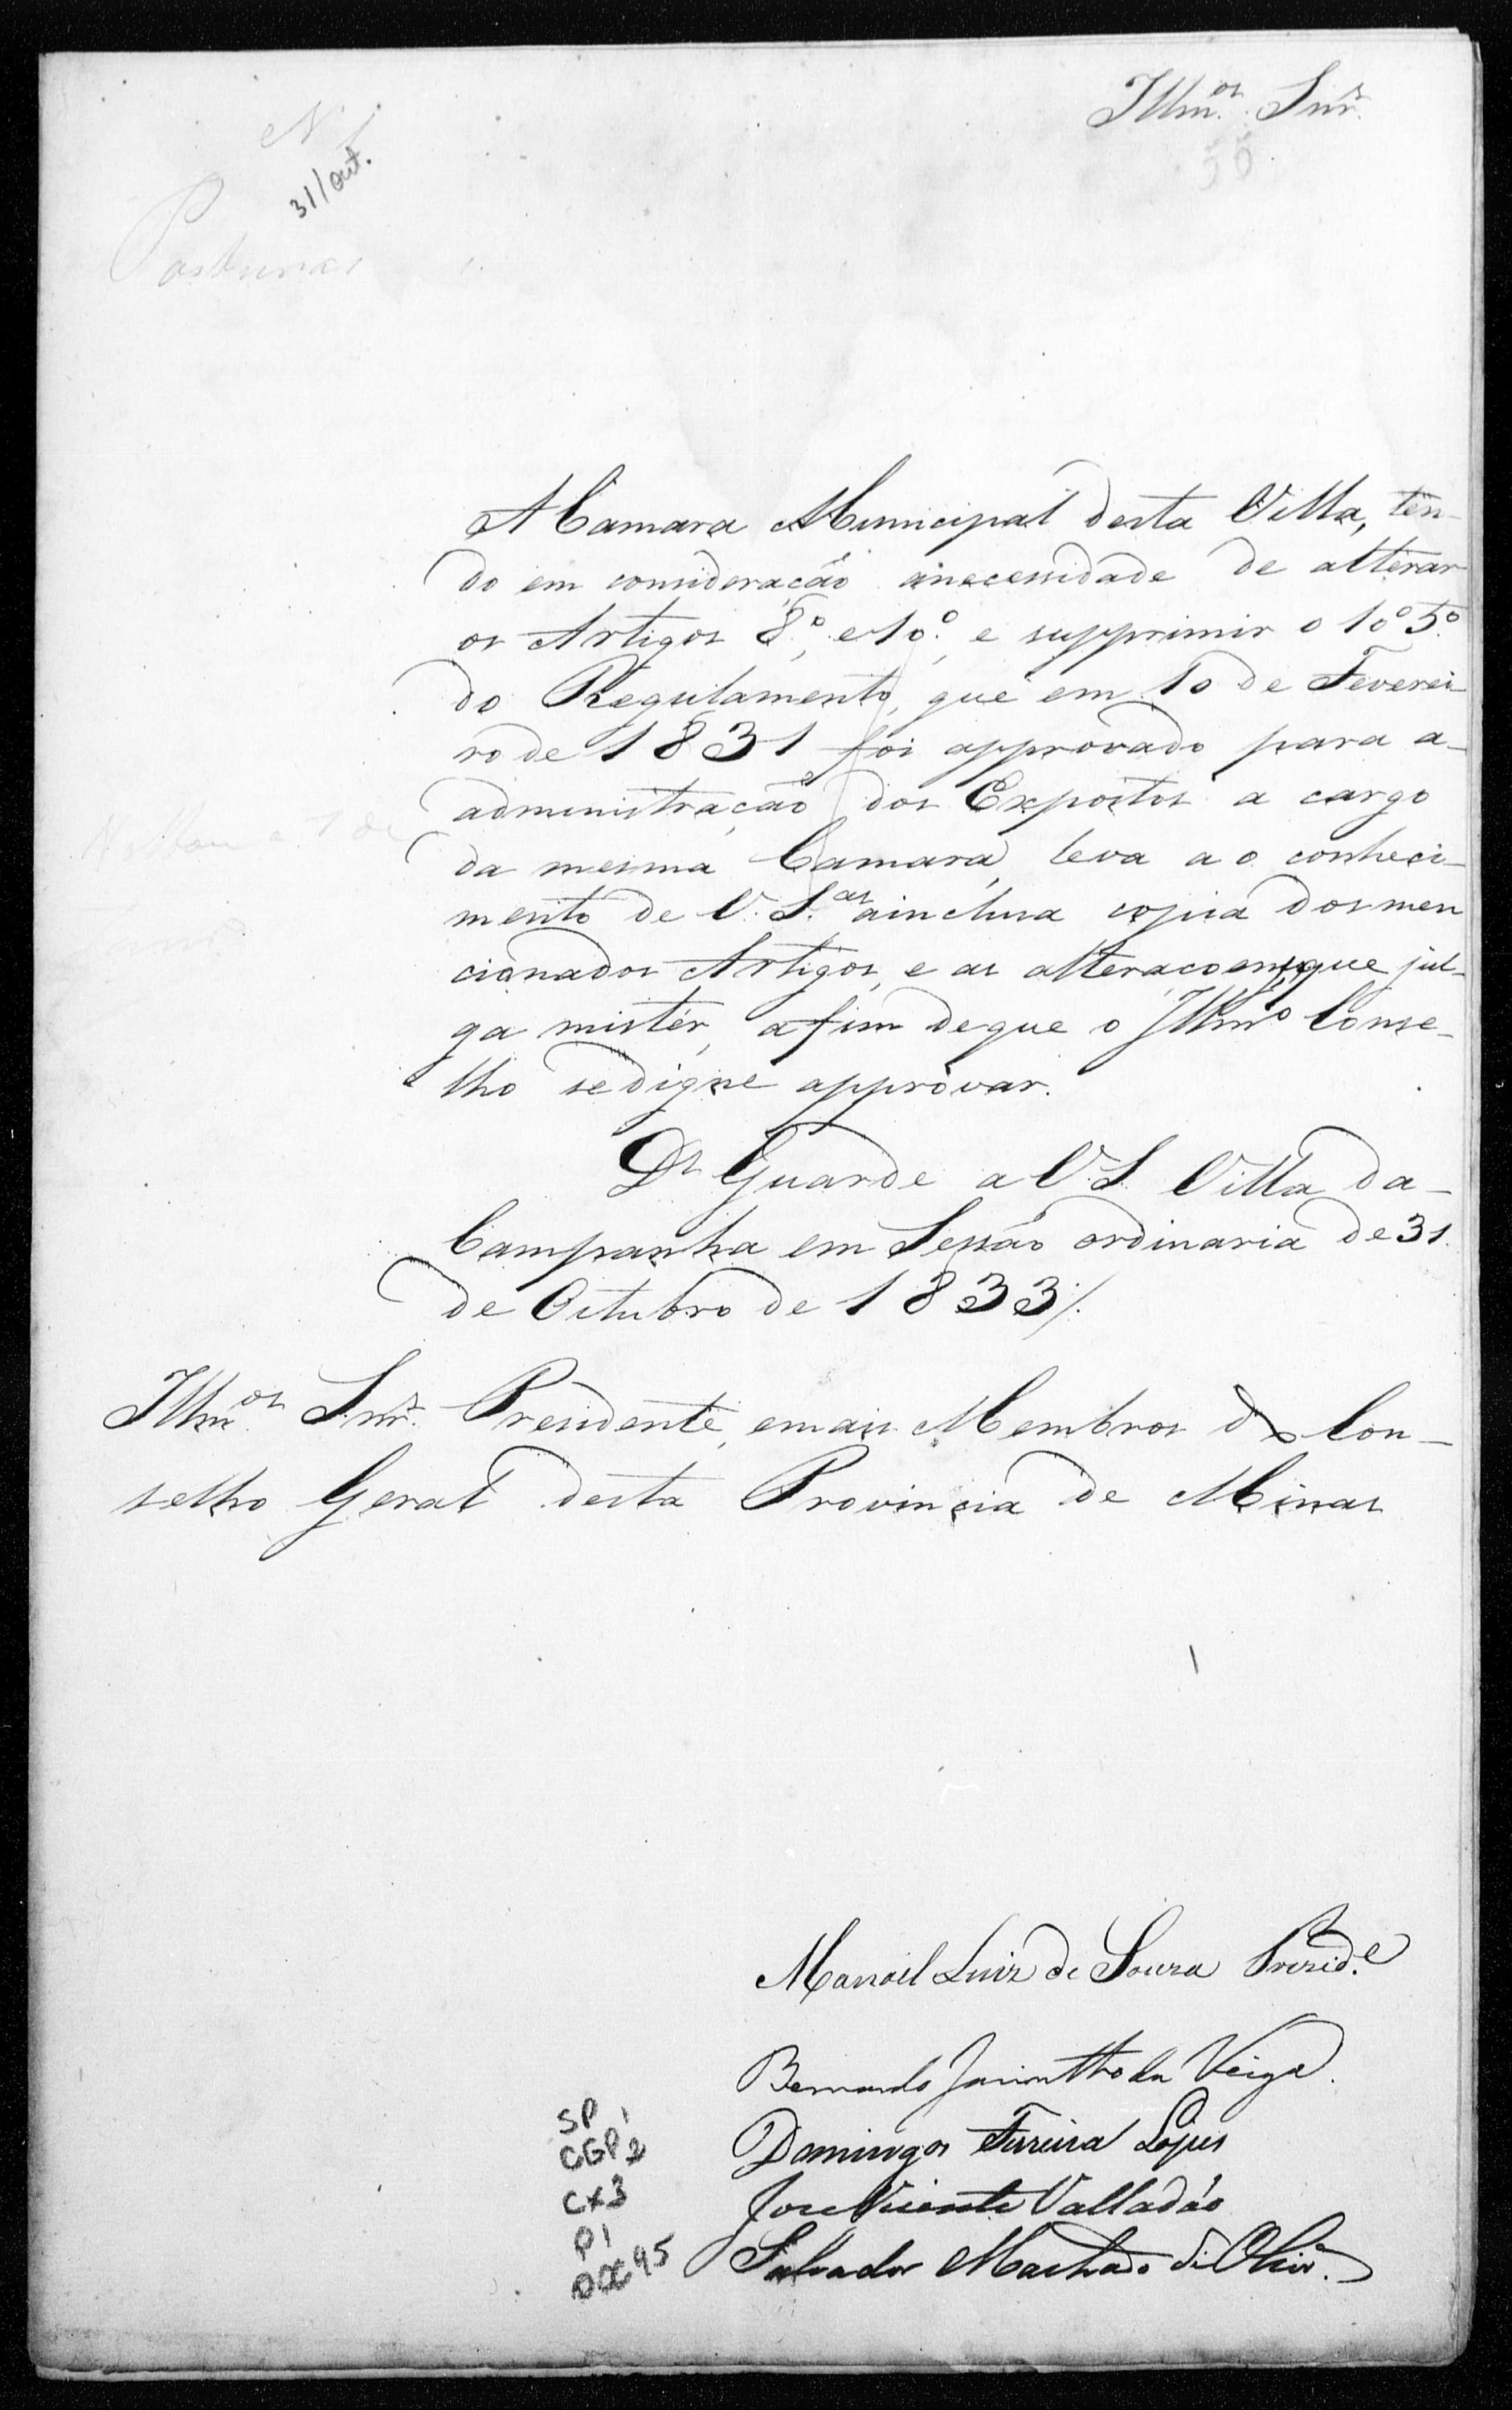 Illm.os Snr.s
N
31/out.
Posturas
A Camara Municipal desta Villa, ten-
do em consideração anecessidade de alterar
os Artigos 8.º, e 10.º, e supprimir o 1º 5.º
do Regulamento, que em 10 de Feverei-
ro de 1831 foi approvado para a-
administração dos Expostos a cargo
da mesma Camara, leva ao conheci-
mento de V. S.as ainclusa copia dos men
cionados Artigos, e as alteraçoens, que jul-
ga mistér, afim deque o Illmº Conse-
lho sedigne approvar.
Ds Guarde a V.S. Villa da-
Campanha em Sessão ordinaria de 31
de Outubro de 1833/.
Illm.os Snr.s Presidente, emais Membros do Con-
selho Geral desta Provincia de Minas
Manoel Luiz de Souza Presid.e
Bernardo Jacinttho da Veiga.
Domingos Ferreira Lopes
Jose Vicente Valladão
Salvador Machado de Olivr.a
SP
CGP 2
CX3
P1
DOC 45